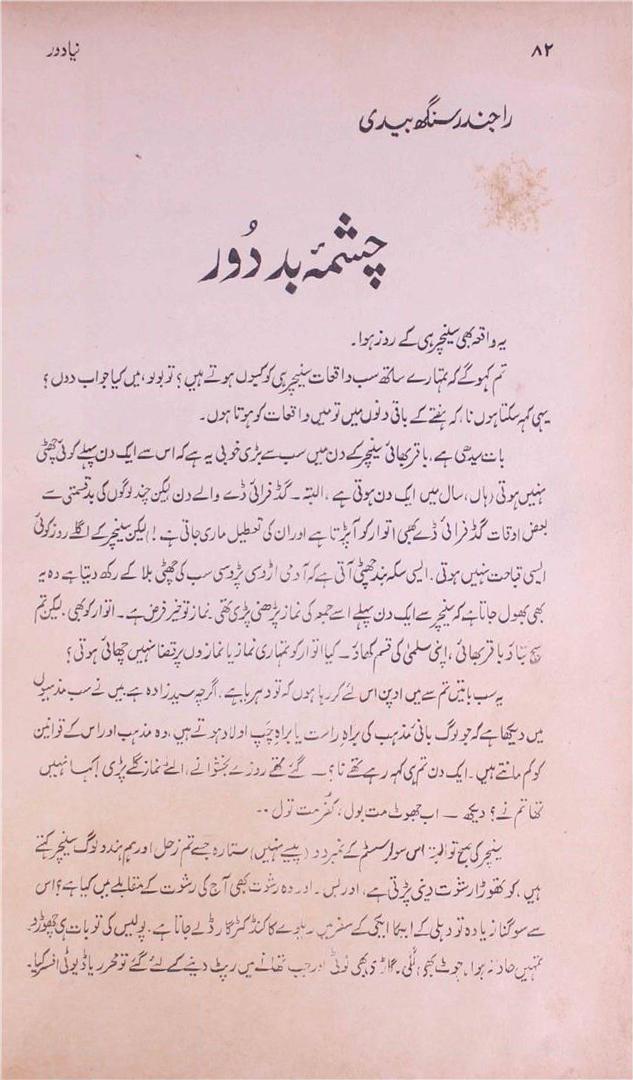 ۸۲
نیا دور
راجندر سنگھ بیدی
چشمۂ بد دُور
یہ واقعہ بھی سنیچر ہی کے روز ہوا۔
تم کہو گے کہ تمہارے ساتھ سب واقعات سنیچر ہی کو کیوں ہوتے ہیں؟ تو بولو، میں کیا جواب دوں؟
یہی کہہ سکتا ہوں نا، کہ ہفتے کے باقی دنوں میں تو میں واقعات کو ہوتا ہوں۔
بات سیدھی ہے، باقر بھائی سنیچر کے دن میں سب سے بڑی خوبی یہ ہے کہ اس سے ایک دن پہلے کوئی چھٹی
نہیں ہوتی (ہاں، سال میں ایک دن ہوتی ہے، البتہ۔ گڈ فرائی ڈے والے دن لیکن چند لوگوں کی بدقسمتی سے
بعض اوقات گڈ فرائی ڈے بھی اتوار کو آپڑتا ہے اور ان کی تعطیل ماری جاتی ہے!) لیکن سنیچر کے اگلے روز کوئی
ایسی قباحت نہیں ہوتی۔ ایسی سکہ بند چھٹی آتی ہے کہ آدمی اڑوسی پڑوسی سب کی چھٹی بلا کے رکھ دیتا ہے وہ یہ
بھی بھول جاتا ہے کہ سنیچر سے ایک دن پہلے اسے جمعہ کی نماز پڑھنی پڑی تھی نماز تو خیر فرض ہے۔ اتوار کو بھی۔ لیکن تم
سچ بتاؤ باقر بھائی، اپنی سلمیٰ کی قسم کھاؤ۔ کیا اتوار کو تمہاری نماز یا نمازوں پر قضا نہیں چھائی ہوتی؟
یہ سب باتیں تم سے میں اوپن اس لئے کر رہا ہوں کہ تو دہریا ہے، اگرچہ سید زادہ ہے میں نے سب مذہبوں
میں دیکھا ہے کہ جو لوگ بانئ مذہب کی براہِ راست یا براہِ چَپ اولاد ہوتے ہیں، وہ مذہب اور اس کے قوانین
کو کم مانتے ہیں۔ ایک دن تم ہی کہہ رہے تھے نا؟ — گئے تھے روزے بخشوانے، الٹے نماز گلے پڑی! کہا نہیں
تھا تم نے؟ دیکھ — اب جھوٹ مت بول، کفر مت تول --
سنیچر کی صبح تو البتہ اس سولر سسٹم کے نمبر دو (پیسے نہیں) ستارہ جسے تم زحل اور ہم ہندو لوگ سنیچر کہتے
ہیں، کو تھوڑا رشوت دینی پڑتی ہے، اور بس۔ اور وہ رشوت بھی آج کی رشوت کے مقابلے میں کیا ہے؟ اس
سے سو گنا زیادہ تو دہلی کے ایجا ایجی کے سفر میں ریلوے کا کنڈکٹر گارڈ لے جاتا ہے۔ پولیس کی تو بات ہی چھوڑ دو
تمہیں حادثہ ہوا، چوٹ بھی لگی۔ گاڑی بھی ٹوٹی اور جب تھانے میں رپٹ دینے کے لئے گئے تو محرر یا ڈیوٹی افسر کیا۔